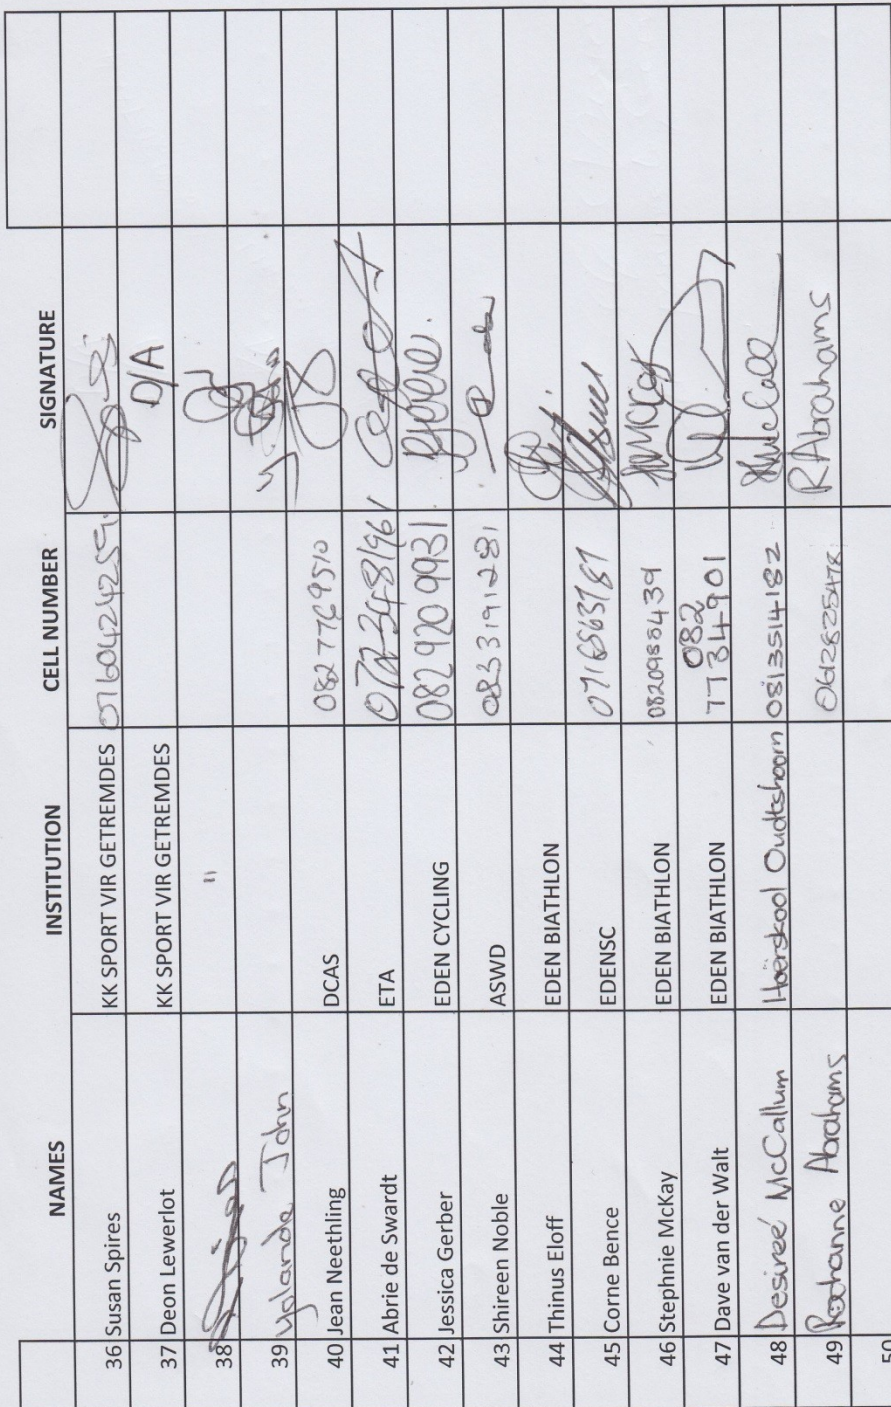 NAMES INSTITUTION CELL NUMBER SIGNATURE
36 Susan Spires KK SPORT VIR GETREMDES 0760424259
37 Deon Lewerlot KK SPORT VIR GETREMDES D/A
38 "
39 Yolande John
40 Jean Neethling DCAS 0827769510
41 Abrie de Swardt ETA 0723481961
42 Jessica Gerber EDEN CYCLING 082 920 9931
43 Shireen Noble ASWD 0833191281
44 Thinus Eloff EDEN BIATHLON
45 Corne Bence EDENSC
46 Stephnie McKay EDEN BIATHLON 0820988439
47 Dave van der Walt EDEN BIATHLON 082
7734901
48 Desireé McCallum Hoërskool Oudtshoorn 0813514182
49 Abrahams 0612825478 R Abrahams
50